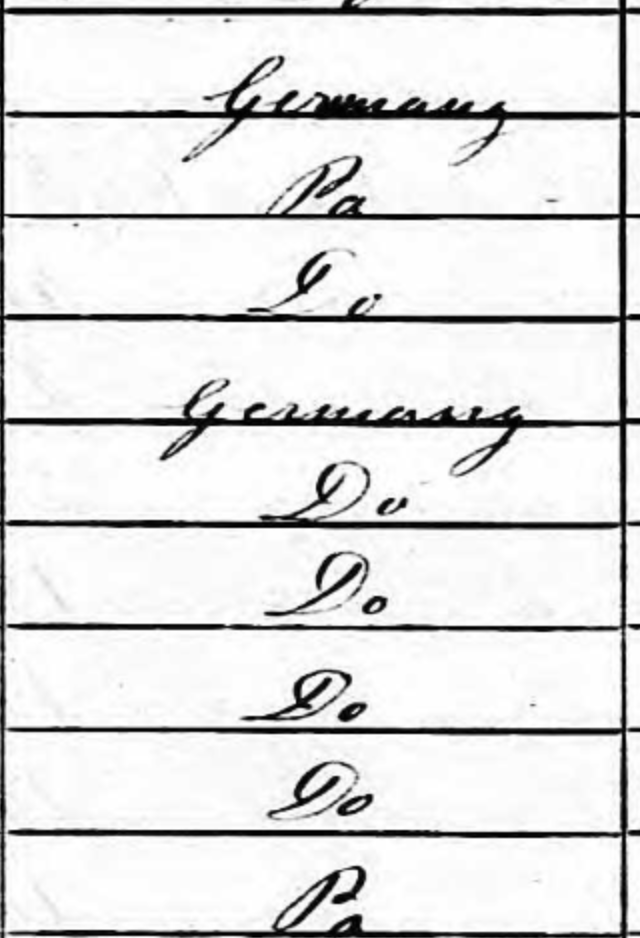 Germany
Pa
Do
Germany
Do
Do
Do
Do
Pa